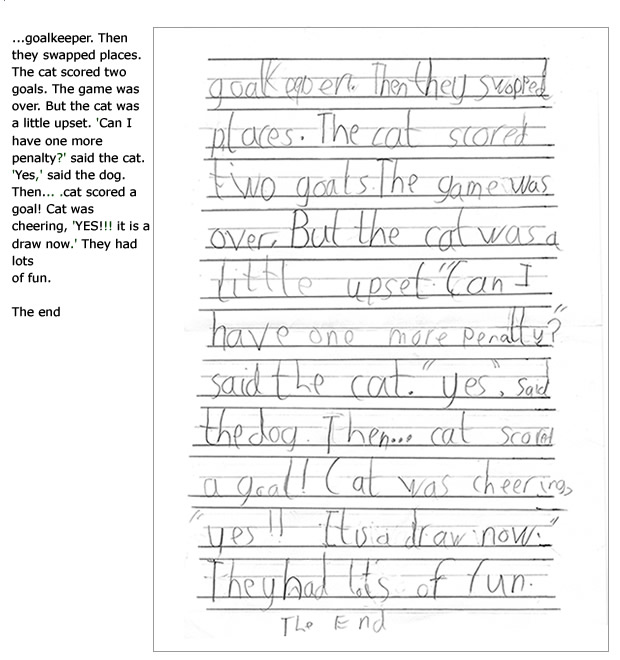 ...goalkeeper. Then
they swapped places.
The cat scored two
goals. The game was
over. But the cat was
a little upset. 'Can I
have one more
penalty?' said the cat.
'Yes,' said the dog.
Then... .cat scored a
goal! Cat was
cheering, 'YES!!! it is a
draw now.' They had
lots
of fun.
The end
goalkeper. Then they swopped
places. The cat scored
two goals. The game was
over. But the cat was a
little upset. "Can I
have one more penalty?"
said the cat. "yes", said
the dog. Then... cat scored
a goal! Cat was cheering,
"yes!! It is a draw now."
They had lots of fun.
The End